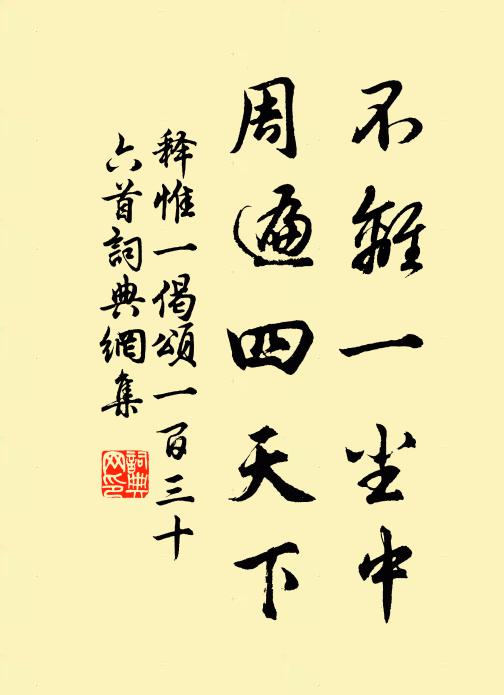 不離一尘中
周遍四天下
释惟一偈頌一百三十
六首詞典網集
詞典网印